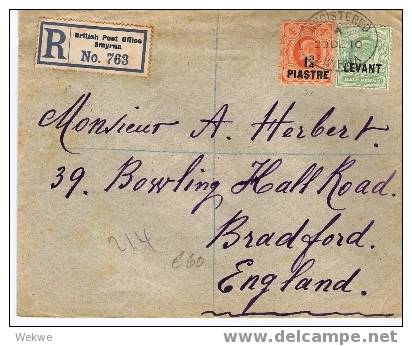 British Post Office
Smyrna
R
No. 763
REGISTERED
A
1¾
PIASTRE
LEVANT
HALF PENNY
Monsieur A. Herbert.
39. Bowling Hall Road.
Bradford.
England.
214
£60
Wekwe
www.delcampe.net